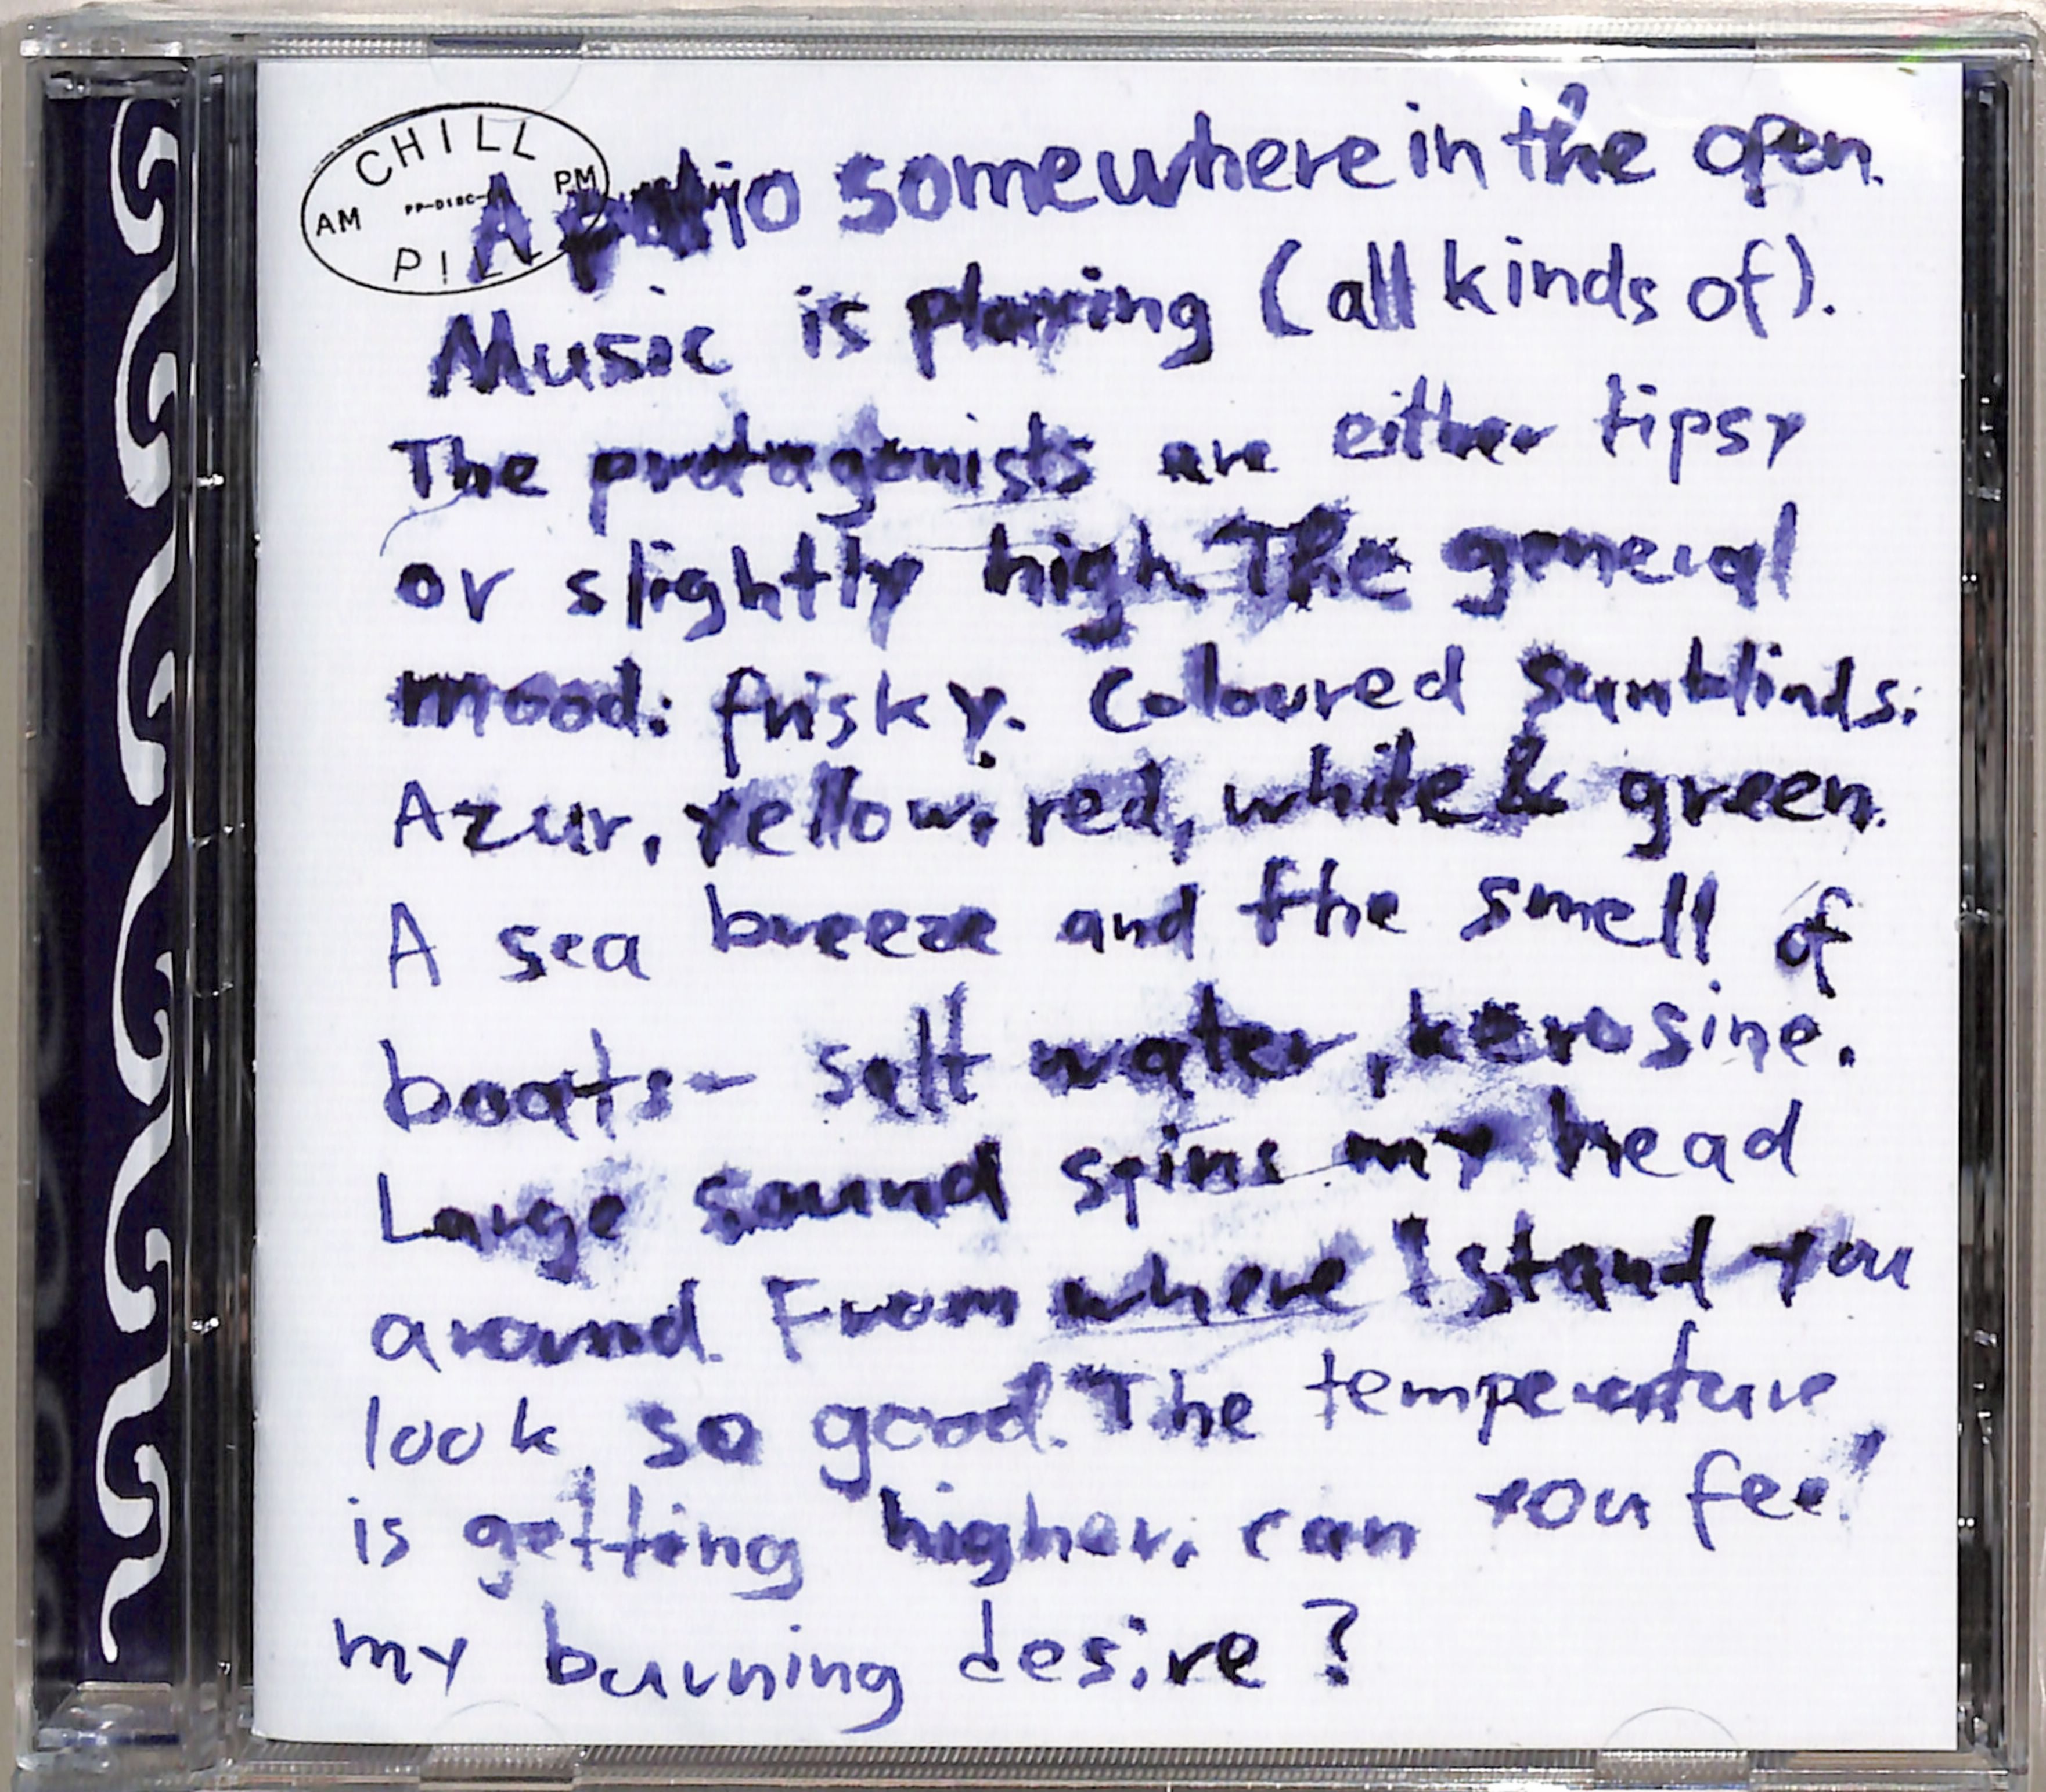 CHILL
AM PM
PILL
A patio somewhere in the open.
Music is playing (all kinds of).
The protagonists are either tipsy
or slightly high The general
mood: frisky. Coloured sunblinds:
Azur, yellow, red, white & green.
A sea breeze and the smell of
boats- salt water, kerosine.
Large sound spins my head
around. From where I stand you
look so good. The temperature
is getting higher, can you feel
my burning desire?